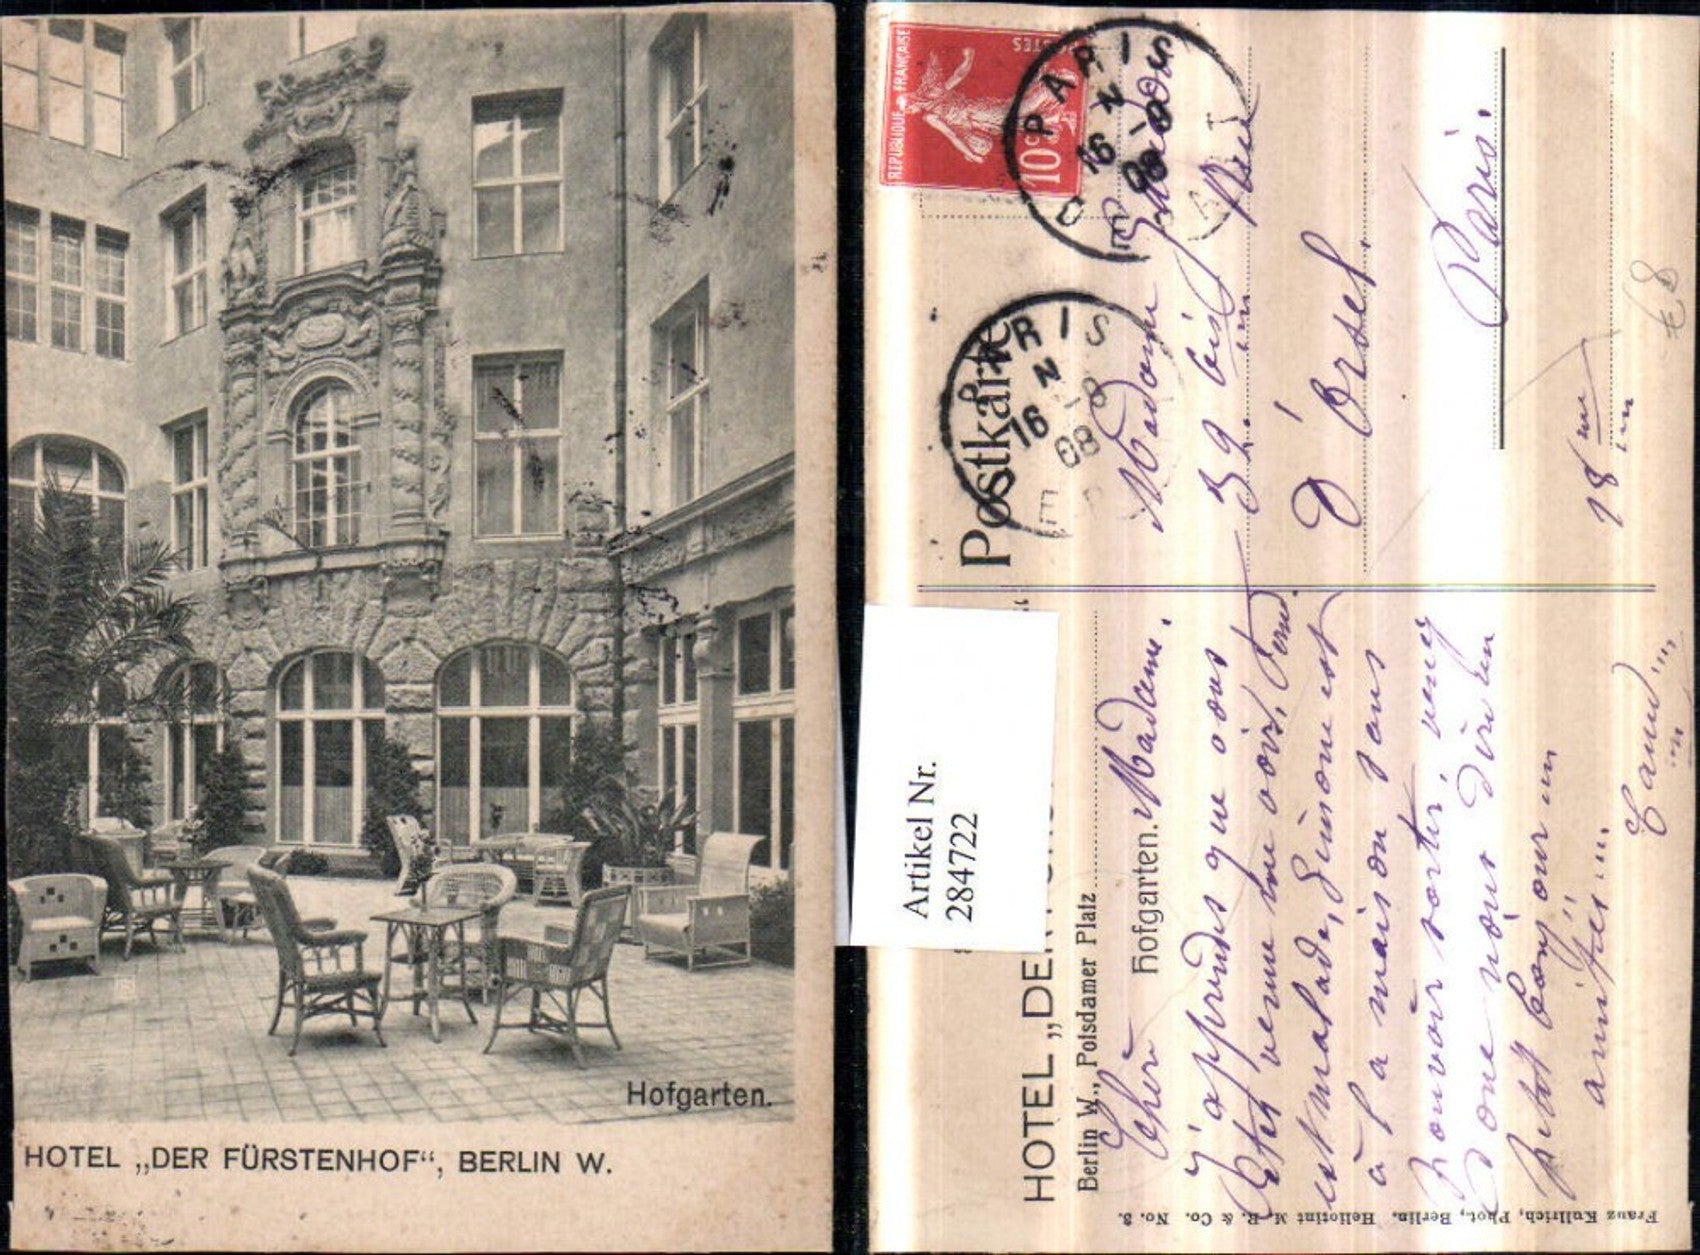 Hofgarten.
HOTEL „DER FÜRSTENHOF“, BERLIN W.
REPUBLIQUE FRANÇAISE
POSTES
10c
PARIS
16
08
PARIS
16
08
Postkarte
Artikel Nr.
284722
HOTEL „DER
Berlin W., Potsdamer Platz
Hofgarten.
Chère Madame.
J'apprends que vous
êtes venue me voir,
est malade, Simone est
à la maison sans
pouvoir sortir, venez
donc nous dire un
petit bonjour
amitiés
Madame
39 bis Rue
D'Orsel.
Paris.
18
Franz Kullrich, Phot., Berlin. Heliotint M. B. & Co. No. 3.
€8